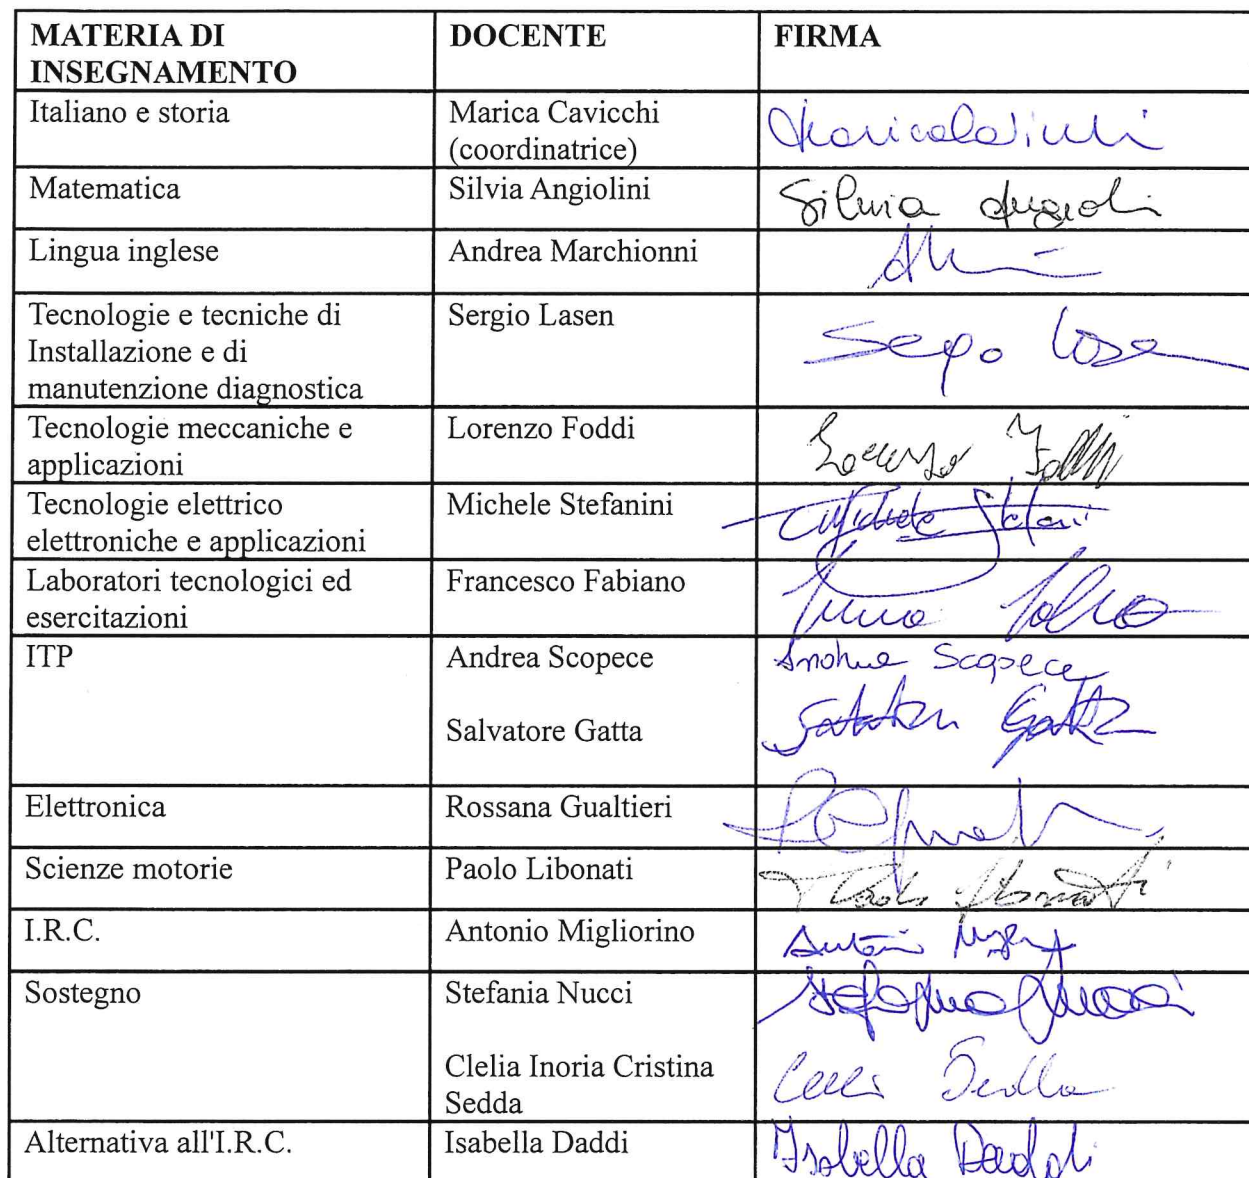 MATERIA DI INSEGNAMENTO DOCENTE FIRMA
Italiano e storia Marica Cavicchi (coordinatrice)
Matematica Silvia Angiolini Silvia
Lingua inglese Andrea Marchionni
Tecnologie e tecniche di Installazione e di manutenzione diagnostica Sergio Lasen
Tecnologie meccaniche e applicazioni Lorenzo Foddi Lorenzo
Tecnologie elettrico elettroniche e applicazioni Michele Stefanini
Laboratori tecnologici ed esercitazioni Francesco Fabiano
ITP Andrea Scopece Scopece
Salvatore Gatta Gatta
Elettronica Rossana Gualtieri
Scienze motorie Paolo Libonati
I.R.C. Antonio Migliorino
Sostegno Stefania Nucci
Clelia Inoria Cristina Sedda Sedda
Alternativa all'I.R.C. Isabella Daddi Isabella Daddi